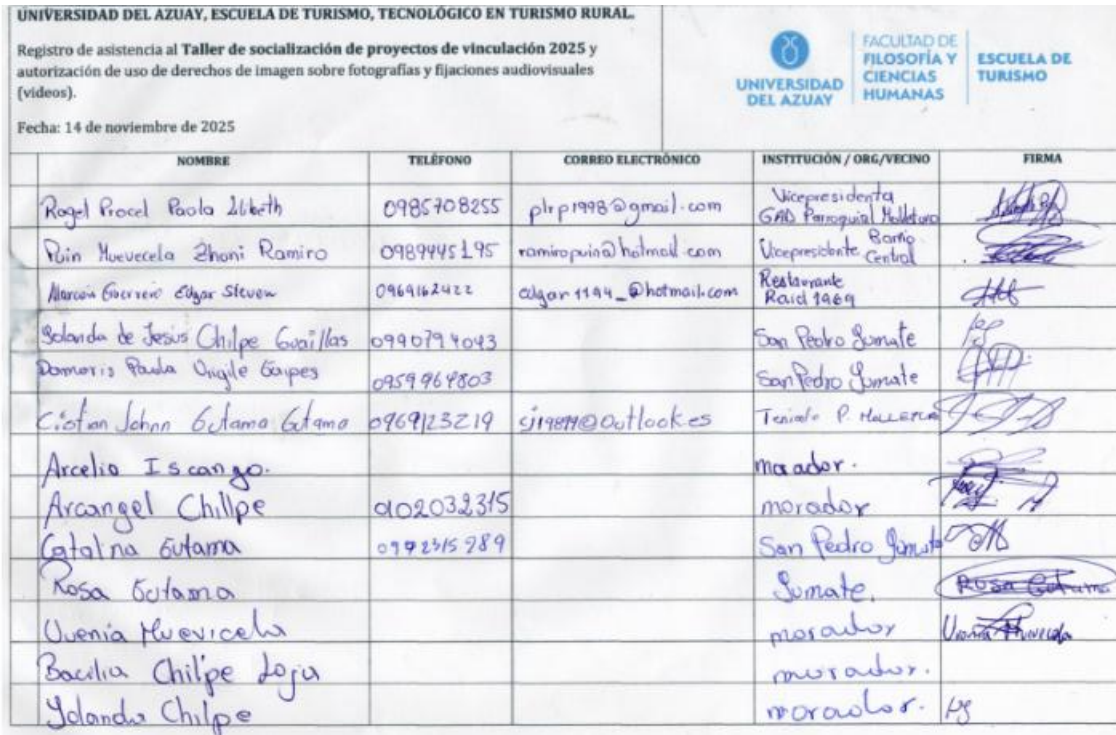 UNIVERSIDAD DEL AZUAY, ESCUELA DE TURISMO, TECNOLÓGICO EN TURISMO RURAL.
Registro de asistencia al Taller de socialización de proyectos de vinculación 2025 y
autorización de uso de derechos de imagen sobre fotografías y fijaciones audiovisuales
(videos).
Fecha: 14 de noviembre de 2025
UNIVERSIDAD
DEL AZUAY
FACULTAD DE
FILOSOFÍA Y
CIENCIAS
HUMANAS
ESCUELA DE
TURISMO
NOMBRE TELÉFONO CORREO ELECTRÓNICO INSTITUCIÓN / ORG/VECINO FIRMA
Rogel Procel Paola Libeth 0985708255 plrp1998@gmail.com Vicepresidenta
GAD Parroquial Molleturo
Puin Muevecela Jhoni Ramiro 0989445195 ramiropuin@hotmail.com Vicepresidente Barrio
Central
Guerrero Edgar Steven 0969162422 edgar1194_@hotmail.com Restaurante
Raid 1969
Yolanda de Jesús Chilpe Guaillas 0990794043 San Pedro Yumate
Damaris Paola 0959964803 San Pedro Yumate
Cistian Johnn Gutama Gutama 0969123219 @Outlook.es P.
Arcelio Iscango. morador.
Arcangel Chillpe 0102032315 morador
Catalna Gutama 0992315289 San Pedro Yumate
Rosa Gutama Yumate. Rosa Gutama
Uvenia Muevicela morador
Bacilia Chilpe Loja morador.
Yolanda Chilpe morador.